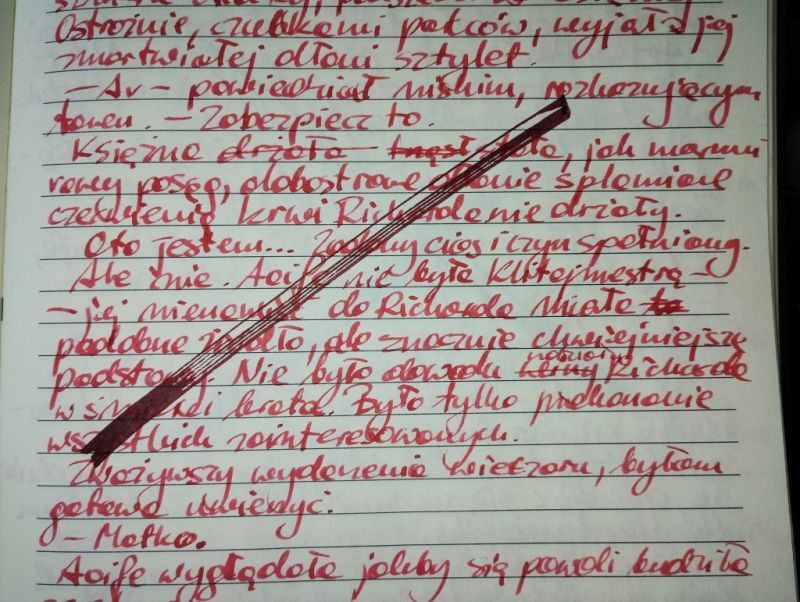 Ostrożnie, czubkami palców, wyjął z jej
zmartwiałej dłoni sztylet.
– Av – powiedział niskim, rozkazującym
tonem. – Zabezpiecz to.
Księżna drżała stała, jak marmu
rowy posąg, alabastrowe dłonie splamione
czerwienią krwi Richarda nie drżały.
Oto jestem... Zadany cios i czyn spełniony.
Ale nie. Aoife nie była Klitajmestrą –
– jej nienawiść do Richarda miała to
podobne źródło, ale znacznie chwiejniejsze
podstawy. Nie było dowodu Richarda
w śmierci brata. Było tylko przekonanie
wszystkich zainteresowanych.
Zważywszy wydarzenia wieczoru, byłam
gotowa uwierzyć.
– Matko.
Aoife wyglądała jakby się powoli budziła